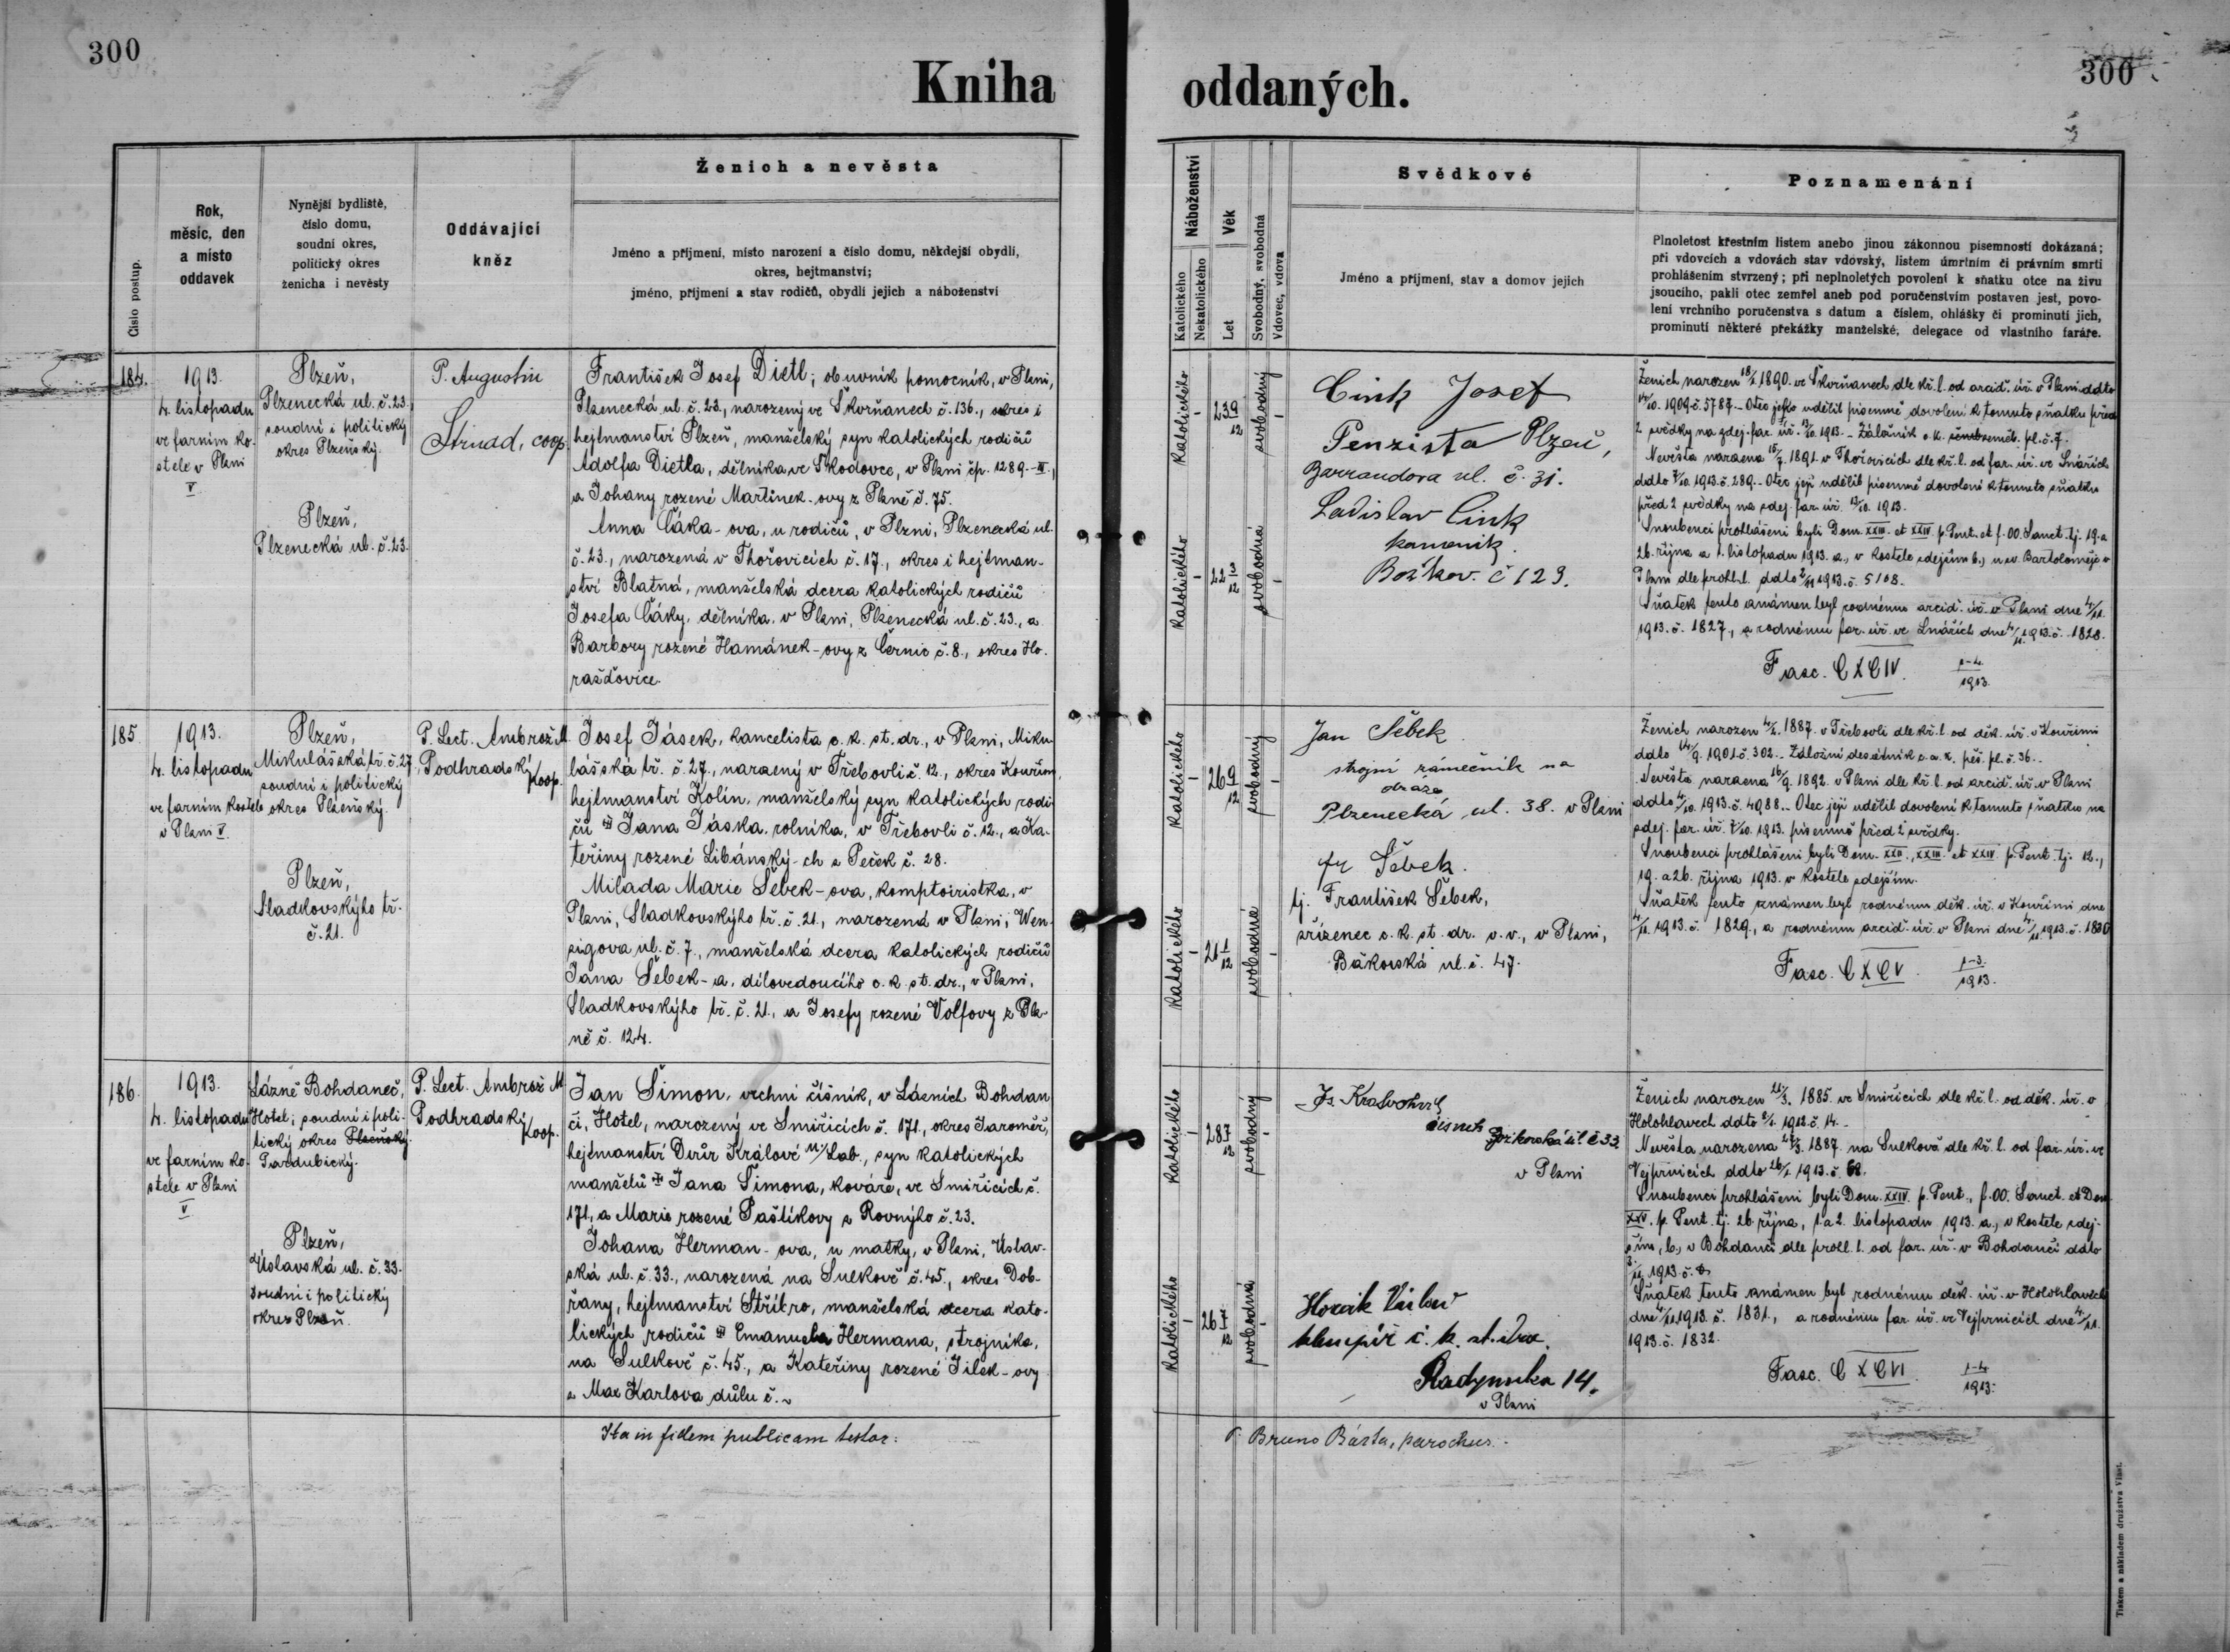 300
300
Kniha oddaných.
Číslo postup.
Rok,
měsíc, den
a místo
oddavek
Nynější bydliště,
číslo domu,
soudní okres,
politický okres
ženicha i nevěsty
Oddávající
kněz
Ženich a nevěsta
Jméno a příjmení, místo narození a číslo domu, někdejší obydlí,
okres, hejtmanství;
jméno, příjmení a stav rodičů, obydlí jejich a náboženství
Náboženství
Katolického
Nekatolického
Věk
Let
Svobodný, svobodná
Vdovec, vdova
Svědkové
Jméno a příjmení, stav a domov jejich
Poznamenání
Plnoletost křestním listem anebo jinou zákonnou písemností dokázaná;
při vdovcích a vdovách stav vdovský, listem úmrtním či právním smrti
prohlášením stvrzený; při neplnoletých povolení k sňatku otce na živu
jsoucího, pakli otec zemřel aneb pod poručenstvím postaven jest, povo-
lení vrchního poručenstva s datum a číslem, ohlášky či prominutí jich,
prominutí některé překážky manželské, delegace od vlastního faráře.
184.
1913.
4. listopadu
ve farním ko-
stele v Plzni
V
Plzeň,
Plzenecká ul. č. 23.
soudní i politický
okres Plzeňský.
Plzeň,
Plzenecká ul. č. 23.
P. Augustin
Strnad, coop.
František Josef Dietl, obuvník pomocník, v Plzni,
Plzenecká ul. č. 23., narozený ve Skvrňanech č. 136., okres i
hejtmanství Plzeň, manželský syn katolických rodičů
Adolfa Dietla, dělníka ve Škodovce, v Plzni čp. 1289.-III.,
a Johany rozené Martínek-ovy z Plzně č. 75.
Anna Čáka-ova, u rodičů, v Plzni, Plzenecká ul.
č. 23., narozená v Thořovicích č. 17., okres i hejtman-
ství Blatná, manželská dcera katolických rodičů
Josefa Čáky, dělníka, v Plzni, Plzenecká ul. č. 23., a
Barbory rozené Hamánek-ovy z Černic č. 8., okres Ho-
ražďovice.
Katolického
-
23 9/12
svobodný
-
Katolického
-
22 3/12
svobodná
-
Cink Josef
Penzista Plzeň,
Barrandova ul. č. 31.
Ladislav Cink
kameník.
Božkov. č 129.
Ženich narozen 18/1. 1890. ve Skvrňanech dle kř. l. od arciď. úř. v Plzni ddto
14/10. 1909. č. 5787. - Otec jeho udělil písemně dovolení k tomuto sňatku před
2 svědky na zdej. far. úř. 13/10. 1913. - Záložník c. k. zeměb. pl. č. 7.
Nevěsta narozena 15/7. 1891. v Thořovicích dle kř. l. od far. úř. ve Lnářích
ddto 7/10. 1913. č. 289. - Otec její udělil písemně dovolení k tomuto sňatku
před 2 svědky na zdej. far. úř. 13/10. 1913.
Snoubenci prohlášeni byli Dom. XXIII. et XXIV. p. Pent. et f. OO. Sanct. tj. 19. a
26. října a 1. listopadu 1913. a., v kostele zdejším b., u sv. Bartoloměje v
Plzni dle prohl. l. ddto 2/11 1913. č. 5108.
Sňatek tento známen byl rodnému arciď. úř. v Plzni dne 4/11.
1913. č. 1827., a rodnému far. úř. ve Lnářích dne 4/11. 1913. č. 1828.
Fasc. CXCIV. 1-4/1913.
185
1913.
4. listopadu
ve farním kostele
v Plzni V.
Plzeň,
Mikulášská tř. č. 27.
soudní i politický
okres Plzeňský.
Plzeň,
Sladkovskýho tř.
č. 21.
P. Lect. Ambrož M
Podhradský
Koop.
Josef Jásek, kancelista c. k. st. dr., v Plzni, Miku-
lášská tř. č. 27., narozený v Třebovli č. 12., okres Kouřim,
hejtmanství Kolín, manželský syn katolických rodi-
čů Jana Jáska, rolníka, v Třebovli č. 12., a Ka-
teřiny rozené Libánský-ch z Peček č. 28.
Milada Marie Šebek-ova, komptoiristka, v
Plzni, Sladkovskýho tř. č. 21., narozená v Plzni, Wen-
zigova ul. č. 7., manželská dcera katolických rodičů
Jana Šebek-a, dílovedoucího c. k. st. dr., v Plzni,
Sladkovskýho tř. č. 21., a Josefy rozené Volfovy z Plz-
ně č. 124.
Katolického
-
26 9/12
svobodný
-
Katolického
-
21 1/12
svobodná
-
Jan Šebek
strojní zámečník na
dráze
Plzenecká ul. 38. v Plzni
fr Šebek.
tj. František Šebek,
zřízenec c. k. st. dr. v. v., v Plzni,
Bákovská ul. č. 47.
Ženich narozen 4/2. 1887. v Třebovli dle kř. l. od děk. úř. v Kouřimi
ddto 14/9. 1901. č. 302. - Záložní desátník c. a k. pěš. pl. č. 36. -
Nevěsta narozena 16/9. 1892. v Plzni dle kř. l. od arciď. úř. v Plzni
ddto 4/10. 1913. č. 4988. - Otec její udělil dovolení k tomuto sňatku na
zdej. far. úř. 7/10. 1913. písemně před 2 svědky.
Snoubenci prohlášeni byli Dom. XXII., XXIII. et XXIV. p. Pent. tj. 12.,
19. a 26. října 1913. v kostele zdejším.
Sňatek tento známen byl rodnému děk. úř. v Kouřimi dne
4/11. 1913. č. 1829., a rodnému arciď. úř. v Plzni dne 4/11. 1913. č. 1830
Fasc. CXCV. 1-3/1913.
186.
1913.
4. listopadu
ve farním ko-
stele v Plzni
V
Lázně Bohdaneč,
Hotel; soudní i poli-
tický okres Plzeňský.
Pardubický.
Plzeň,
Úslavská ul. č. 33.
soudní i politický
okres Plzeň.
P. Lect. Ambrož M
Podhradský
Koop.
Jan Šimon, vrchní číšník, v Lázních Bohdan-
či, Hotel, narozený ve Smiřicích č. 171., okres Jaroměř,
hejtmanství Dvůr Králové n/Lab., syn katolických
manželů Jana Šimona, kováře, ve Smiřicích č.
171, a Marie rozené Paštikovy z Rovnýho č. 23.
Johana Herman-ova, u matky, v Plzni, Úslav-
ská ul. č. 33., narozená na Sulkově č. 45., okres Dob-
řany, hejtmanství Stříbro, manželská dcera kato-
lických rodičů Emanuela Hermana, strojníka,
na Sulkově č. 45., a Kateřiny rozené Jilek-ovy
z Max Karlova důlu č.
Katolického
-
28 7/12
svobodný
-
Katolického
-
26 7/12
svobodná
-
číšník
č 33
v Plzni
klempíř c. k. st. drah.
Radymska 14.
v Plzni
Ženich narozen 21/3. 1885. ve Smiřicích dle kř. l. od děk. úř. v
Holohlavech ddto 1912. č. 14. -
Nevěsta narozena 1887. na Sulkově dle kř. l. od far. úř. ve
Vejprnicích ddto 1913. č. 68.
Snoubenci prohlášeni byli Dom. XXIV. p. Pent., f. OO. Sanct. et Dom
XXV. p. Pent. tj. 26. října, 1. a 2. listopadu 1913. a., v kostele zdej-
ším, b., v Bohdanči dle prohl. l. od far. úř. v Bohdanči ddto
3/11. 1913. č.
Sňatek tento známen byl rodnému děk. úř. v Holohlavech
dne 4/11. 1913. č. 1831., a rodnému far. úř. ve Vejprnicích dne 4/11.
1913. č. 1832.
Fasc. CXCVI. 1-4/1913.
Ita in fidem publicam testor:
P. Bruno Bárta, parochus.
Tiskem a nákladem družstva Vlast.